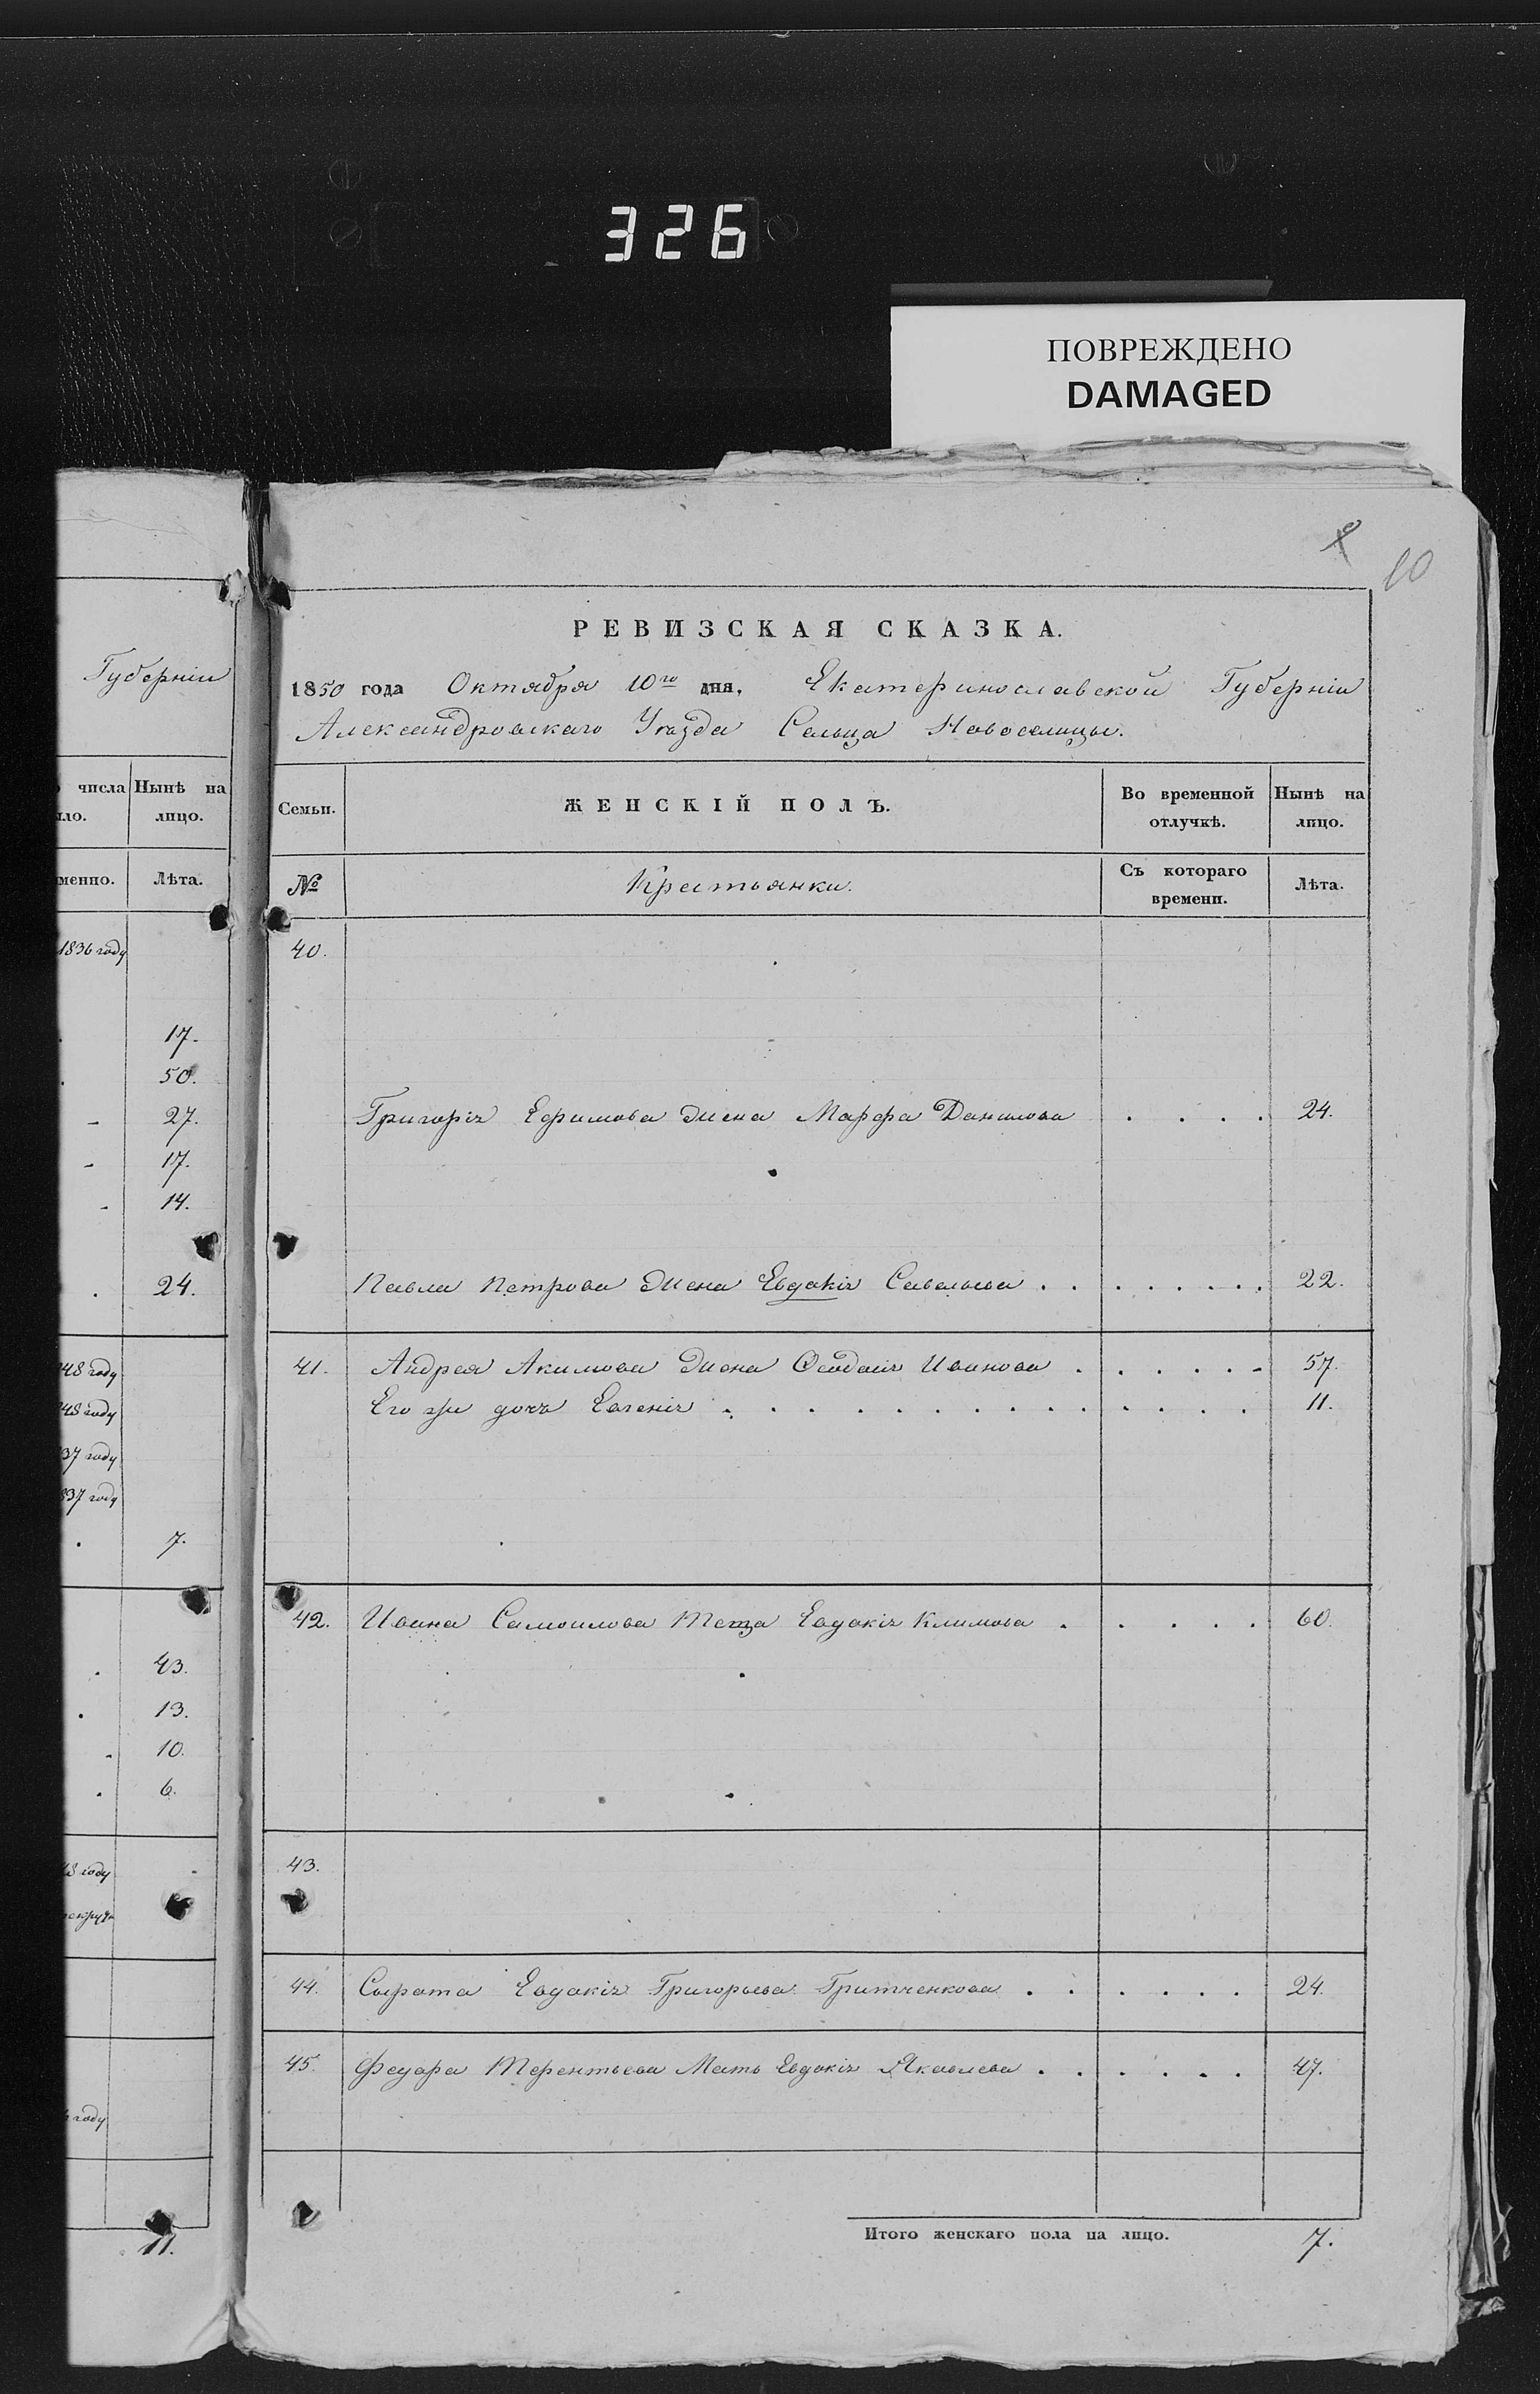 326
ПОВРЕЖДЕНО
DAMAGED
10
Губерніи
числа Нынѣ на
ло. лицо.
менно. Лѣта.
1836 году
17.
50.
27.
17.
14.
24.
48 году
48 году
37 году
837 году
7.
43.
13.
10.
6.
48 году
году
11.
РЕВИЗСКАЯ СКАЗКА.
1850 года Октября 10го дня, Екатеринославской Губерніи
Александровскаго Уѣзда Сельца Новоселицы.
Семьи. ЖЕНСКІЙ ПОЛЪ. Во временной отлучкѣ. Нынѣ на лицо.
№ Крестьянки. Съ котораго времени. Лѣта.
40.
Григорія Ефимова жена Марфа Данилова . . . . 24.
Павла Петрова жена Евдокія Савельева . . . . . . . 22.
41. Андрея Акимова жена Феодосія Иванова . . . . . . 57.
Его же дочь Евгенія . . . . . . . . . . . . . . 11.
42. Ивана Самоилова теща Евдокія Климова . . . . . 60.
43.
44. Сирота Евдокія Григорьева Гритченкова . . . . . . 24.
45. Федора Терентьева Мать Евдокія Яковлева . . . . . . 47.
Итого женскаго пола на лицо. 7.